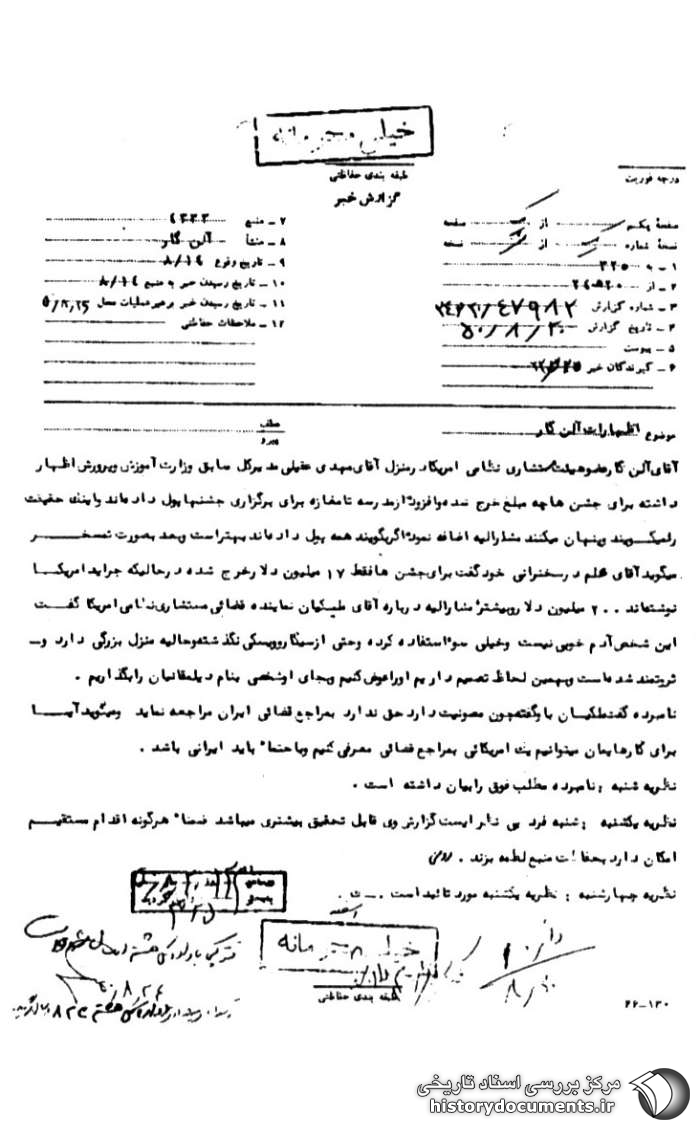 خیلی محرمانه
طبقه بندی حفاظتی
درجه فوریت
گزارش خبر
صفحهٔ یکم از صفحه
نسخهٔ شماره از نسخه
۱ ـ به ۳۲۵
۲ ـ از ۲۰ﻫ۵
۳ ـ شماره گزارش ۴۷۹۸۲
۴ ـ تاریخ گزارش ۵۰/۸/۲۰
۵ ـ پیوست
۶ ـ گیرندگان خبر
۷ ـ منبع
۸ ـ منشأ آلن گار
۹ ـ تاریخ وقوع ۸/۱۴
۱۰ ـ تاریخ رسیدن خبر به منبع ۸/۱۴
۱۱ ـ تاریخ رسیدن خبر برهبر عملیات محل
۱۲ ـ ملاحظات حفاظتی
موضوع اظهارات آلن گار
عطف
پیرو
آقای آلن گار عضو هیئت مستشاری نظامی امریکا در منزل آقای مهدی عقیلی مدیرکل سابق وزارت آموزش و پرورش اظهار
داشته برای جشن ها چه مبلغ خرج شده و افزود از مدرسه تا مغازه برای برگزاری جشنها پول داده‌اند و اینکه حقیقت
را میگویند و پنهان میکنند مشارالیه اضافه نمود اگر بگویند همه پول داده‌اند بهتر است و بعد بصورت تمسخر
میگوید آقای علم در سخنرانی خود گفت برای جشن ها فقط ۱۷ میلیون دلار خرج شده در حالیکه جراید امریکا
نوشته‌اند ۲۰۰ میلیون دلار و بیشتر مشارالیه درباره آقای طلیکیان نماینده قضائی مستشاری نظامی امریکا گفت
این شخص آدم خوبی نیست و خیلی سوء استفاده کرده و حتی از سیگار و ویسکی نگذشته و حالیه منزل بزرگی دارد و
ثروتمند شده است و بهمین لحاظ تصمیم داریم او را عوض کنیم و بجای او شخصی بنام دیلمقانیان را بگذاریم .
نامبرده گفت طلیکیان با و گفته چون مصونیت دارد حق ندارد بمراجع قضائی ایران مراجعه نماید و میگوید آیا
برای کارهایمان میتوانیم یک امریکائی بمراجع قضائی معرفی کنیم و یا حتماً باید ایرانی باشد .
نظریه شنبه : نامبرده مطلب فوق را بیان داشته است .
نظریه یکشنبه : شنبه فرد بی نظری است گزارش وی قابل تحقیق بیشتری میباشد ضمناً هرگونه اقدام مستقیم
امکان دارد بحفاظت منبع لطمه بزند .
نظریه چهارشنبه : نظریه یکشنبه مورد تائید است . ـ ت .
خیلی محرمانه
طبقه بندی حفاظتی
۲۶-۱۳۰
مرکز بررسی اسناد تاریخی
historydocuments.ir